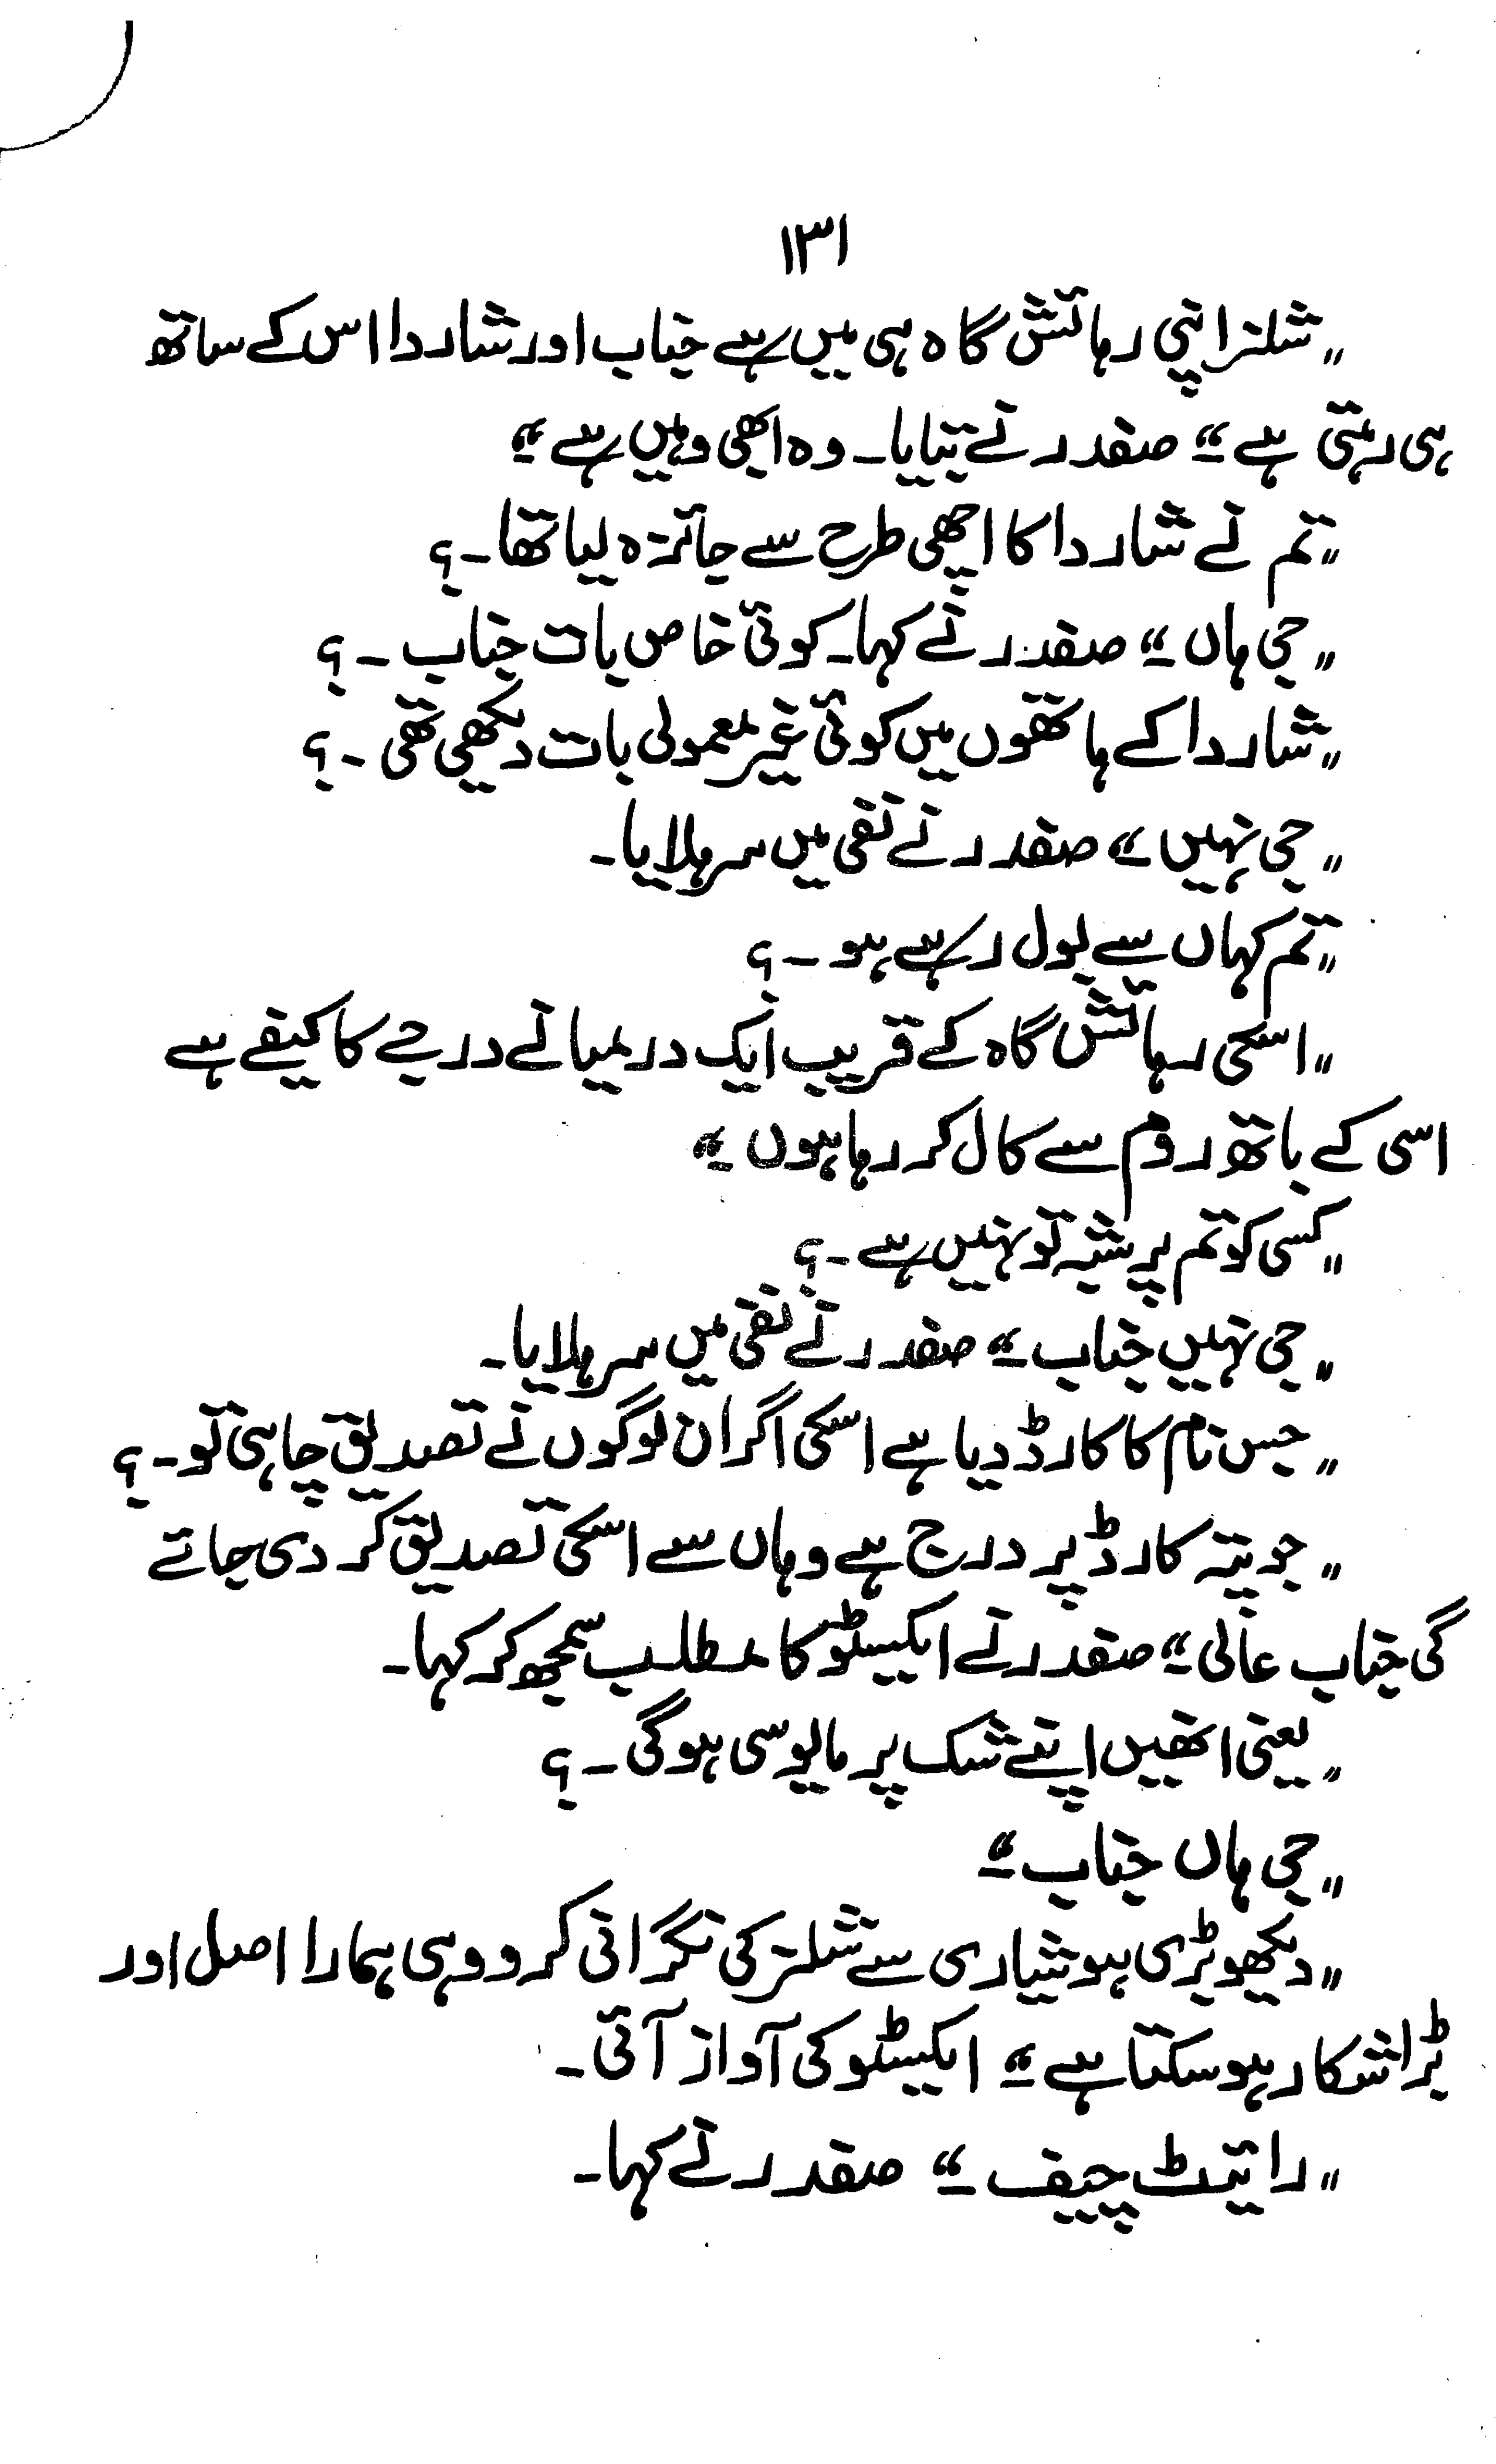 ۱۳۱
"شلنر اپنی رہائش گاہ ہی میں ہے جناب اور شاردا اس کے ساتھ
ہی رہتی ہے۔" صفدر نے بتایا۔ وہ ابھی وہیں ہے۔"
"تم نے شاردا کا اچھی طرح سے جائزہ لیا تھا۔؟
"جی ہاں۔" صفدر نے کہا۔ کوئی خاص بات جناب۔؟
"شاردا کے ہاتھوں میں کوئی غیر معمولی بات دیکھی تھی۔؟
"جی نہیں۔" صفدر نے نفی میں سر ہلایا۔
"تم کہاں سے بول رہے ہو۔؟
"اسکی رہائش گاہ کے قریب ایک درمیانے درجے کا کیفے ہے
اسی کے باتھ روم سے کال کر رہا ہوں۔"
"کسی کو تم پر شبہ تو نہیں ہے۔؟
"جی نہیں جناب۔" صفدر نے نفی میں سر ہلایا۔
"جس نام کا کارڈ دیا ہے اسکی اگر ان لوگوں نے تصدیق چاہی تو۔؟
"جو پتہ کارڈ پر درج ہے وہاں سے اسکی تصدیق کر دی جائے
گی جناب عالی۔" صفدر نے ایکسٹو کا مطلب سمجھ کر کہا۔
"یعنی انھیں اپنے شک پر مایوسی ہوگی۔؟
"جی ہاں جناب۔"
"دیکھو بڑی ہوشیاری سے شلنر کی نگرانی کرو وہی ہمارا اصل اور
بڑا شکار ہو سکتا ہے۔" ایکسٹو کی آواز آئی۔
"رائیٹ چیف۔" صفدر نے کہا۔